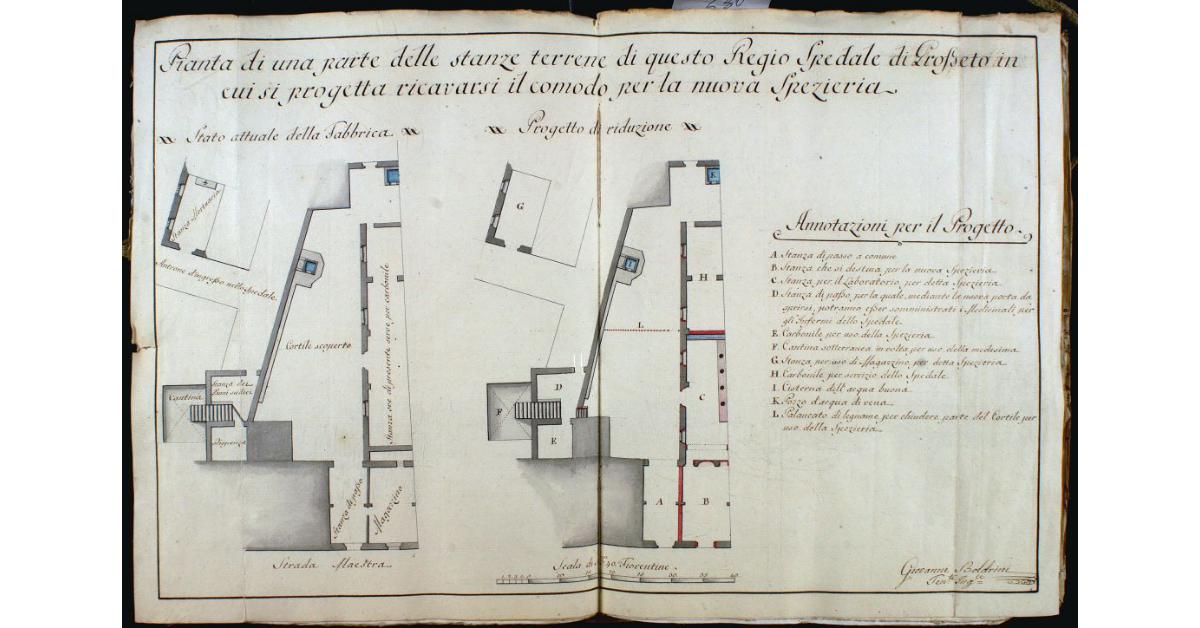 Pianta di una parte delle stanze terrene di questo Regio Spedale di Grosseto in
cui si progetta ricavarsi il comodo per la nuova Spezieria
Stato attuale della Fabbrica
Stanza Mortuaria
Androne d'ingresso nello Spedale
Cortile scoperto
Stanza ove di presente serve per carbonile
Cantina
Stanza dei
Dispenza
Stanza di passo
Magazzino
Strada Maestra
Progetto di riduzione
K
G
I
H
L
D
C
F
E
A
B
Scala di 40 Fiorentine
10 20 30 40
Annotazioni per il Progetto
A Stanza di passo a comune
B Stanza che si destina per la nuova Spezieria
C Stanza per il Laboratorio per detta Spezieria
D Stanza di passo per la quale, mediante la nuova porta da
aprirsi, potranno esser somministrati i Medicinali per
gli Infermi dello Spedale
E Carbonile per uso della Spezieria
F Cantina sotterranea in volta per uso della medesima
G Stanza per uso di Magazzino per detta Spezieria
H Carbonile per servizio dello Spedale
I Cisterna dell'acqua buona
K Pozzo d'acqua di vena
L Palancato di legname per chiudere parte del Cortile per
uso della Spezieria
Giovanni Boldrini
Ten.te Ing.re